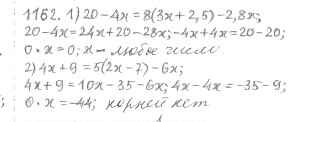 1162. 1) 20 - 4x = 8(3x + 2,5) - 2,8x;
20 - 4x = 24x + 20 - 28x; -4x + 4x = 20 - 20;
0 · x = 0; x - любое число
2) 4x + 9 = 5(2x - 7) - 6x;
4x + 9 = 10x - 35 - 6x; 4x - 4x = -35 - 9;
0 · x = -44; корней нет